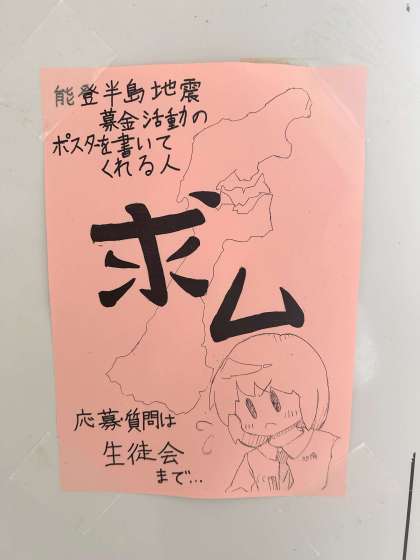 能登半島地震
募金活動の
ポスターを書いて
くれる人
求ム
応募・質問は
生徒会
まで…